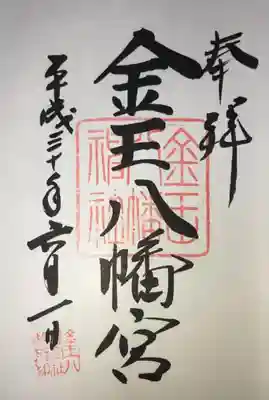 奉拝
金王八幡宮
金王
八幡
神社
平成三十年六月一日